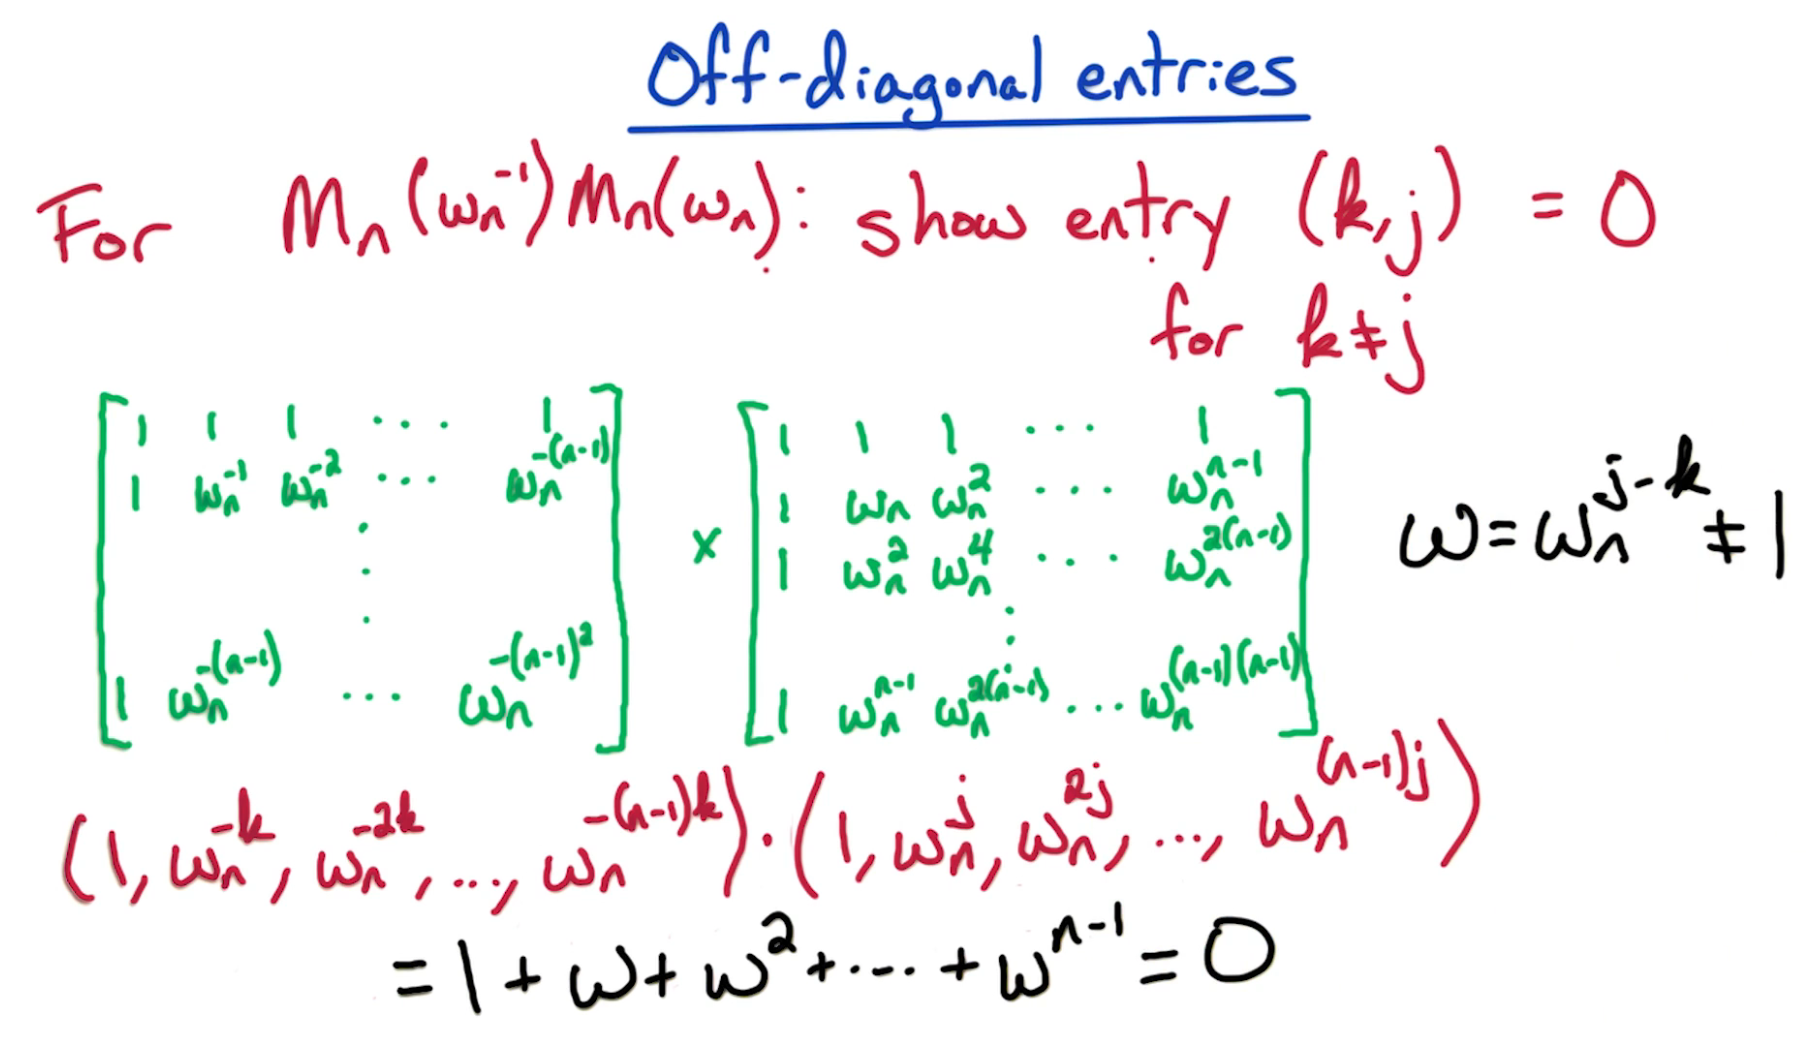 Off-diagonal entries
For Mₙ(ωₙ⁻¹)Mₙ(ωₙ): show entry (k,j) = 0
for k≠j
[1 1 1 ... 1
1 ωₙ^-1 ωₙ^-2 ... ωₙ^-(n-1)
⋮
1 ωₙ^-(n-1) ... ωₙ^-(n-1)^2]
×
[1 1 1 ... 1
1 ωₙ ωₙ^2 ... ωₙ^n-1
1 ωₙ^2 ωₙ^4 ... ωₙ^2(n-1)
⋮
1 ωₙ^n-1 ωₙ^2(n-1) ... ωₙ^(n-1)(n-1)]
ω = ωₙ^j-k ≠ 1
(1, ωₙ^-k, ωₙ^-2k, ..., ωₙ^-(n-1)k) · (1, ωₙ^j, ωₙ^2j, ..., ωₙ^(n-1)j)
= 1 + ω + ω^2 + ... + ω^n-1 = 0